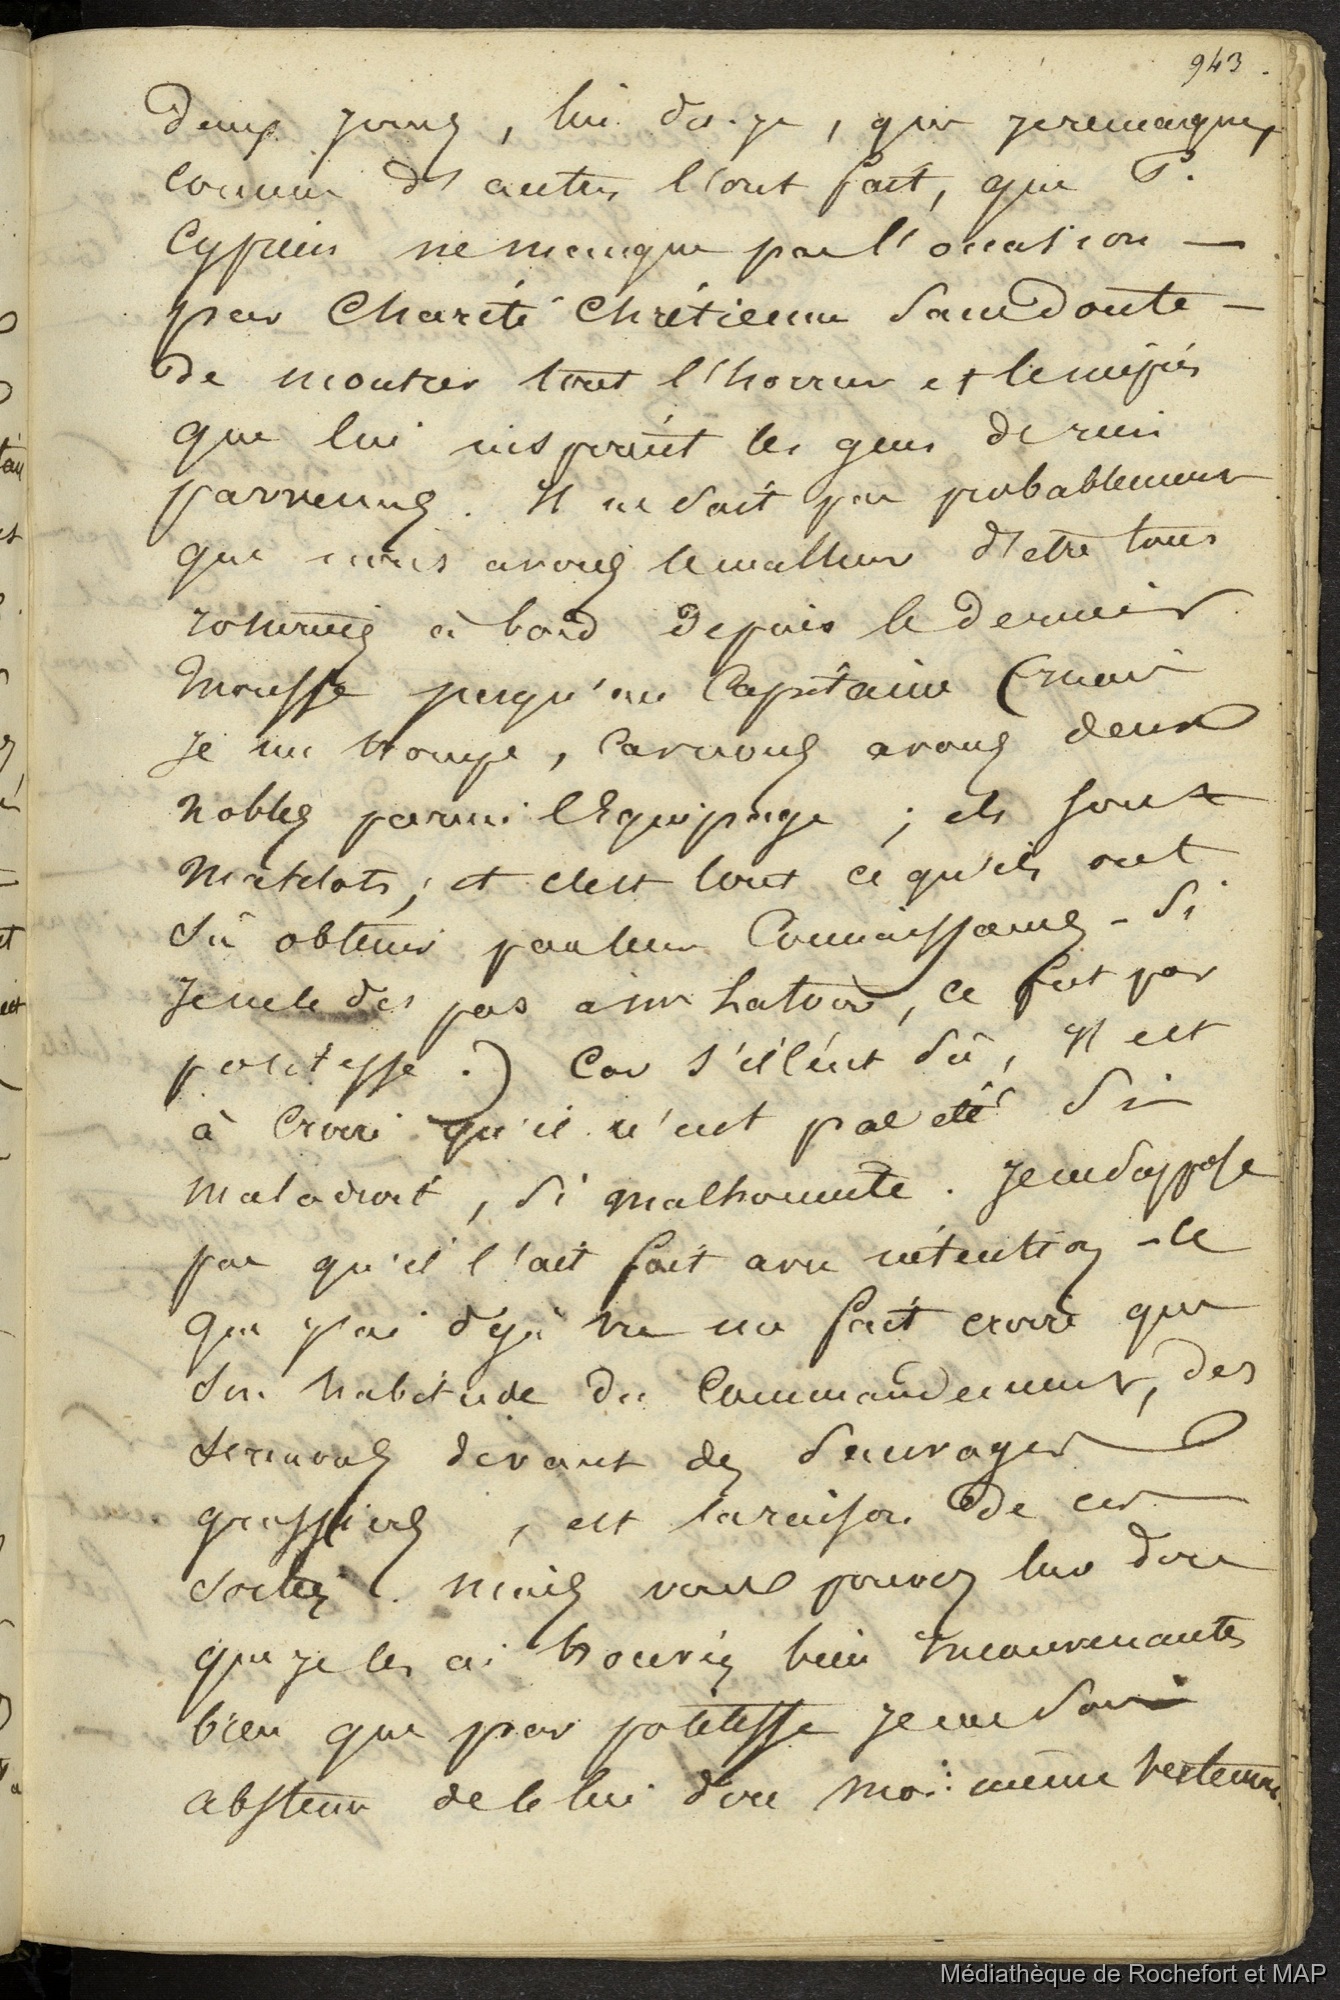 943.
deux jours, lui dis-je, que je remarque,
comme d'autres l'ont fait, que P.
Cyprien ne manque pas l'occasion —
par charité chrétienne sans doute —
de montrer tout l'horreur et le mépris
que lui inspirent les gens de rien
parvenus. Il ne sait pas probablement
que nous avons le malheur d'être tous
roturiers à bord depuis le dernier
mousse jusqu'au Capitaine (mais
je me trompe, car nous avons deux
nobles parmi l'équipage ; ils sont
matelots ; et c'est tout ce qu'ils ont
sû obtenir par leurs connaissances - si
je ne le dis pas à ce ce fut par
politesse.) Car s'il l'eut sû, il est
à croire qu'il n'eut pas été si
maladroit, si malhonnête. Je ne suppose
pas qu'il l'ait fait avec intention - ce
que j'ai déjà vu me fait croire que
son habitude du commandement, des
sermons devant des sauvages
grossiers, est la raison de ces
sorties. Mais vous pouvez lui dire
que je les ai trouvées bien inconvenantes
bien que par politesse je me sois
abstenu de le lui dire moi-même vertement.
Médiathèque de Rochefort et MAP